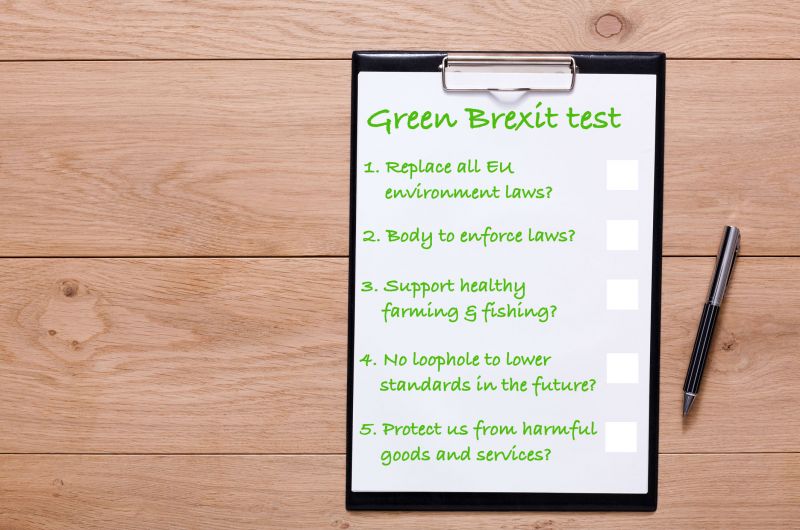 Green Brexit test
1. Replace all EU
environment laws?
2. Body to enforce laws?
3. Support healthy
farming & fishing?
4. No loophole to lower
standards in the future?
5. Protect us from harmful
goods and services?